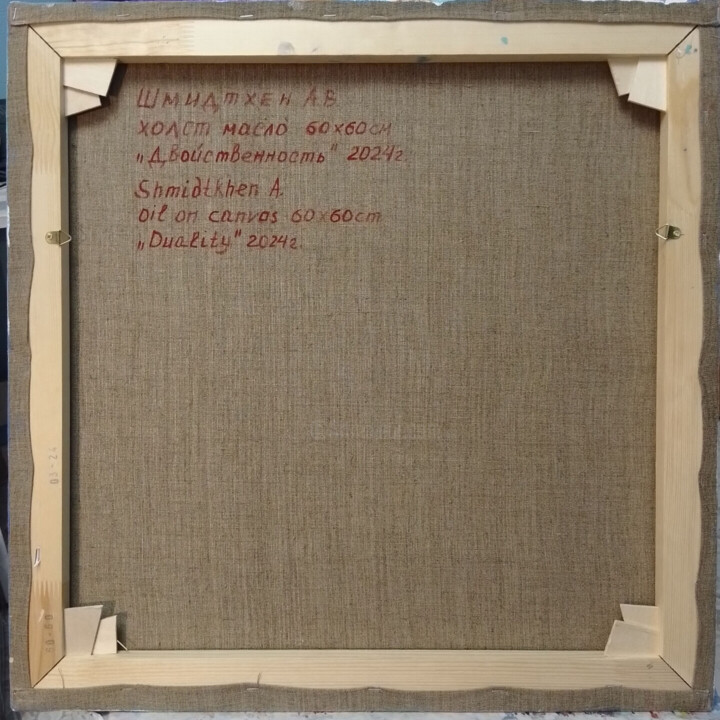 Шмидтхен А.В.
холст масло 60х60см
„Двойственность" 2024г.
Shmidtkhen A.
oil on canvas 60x60cm
„Duality" 2024г.
03-24
60-60